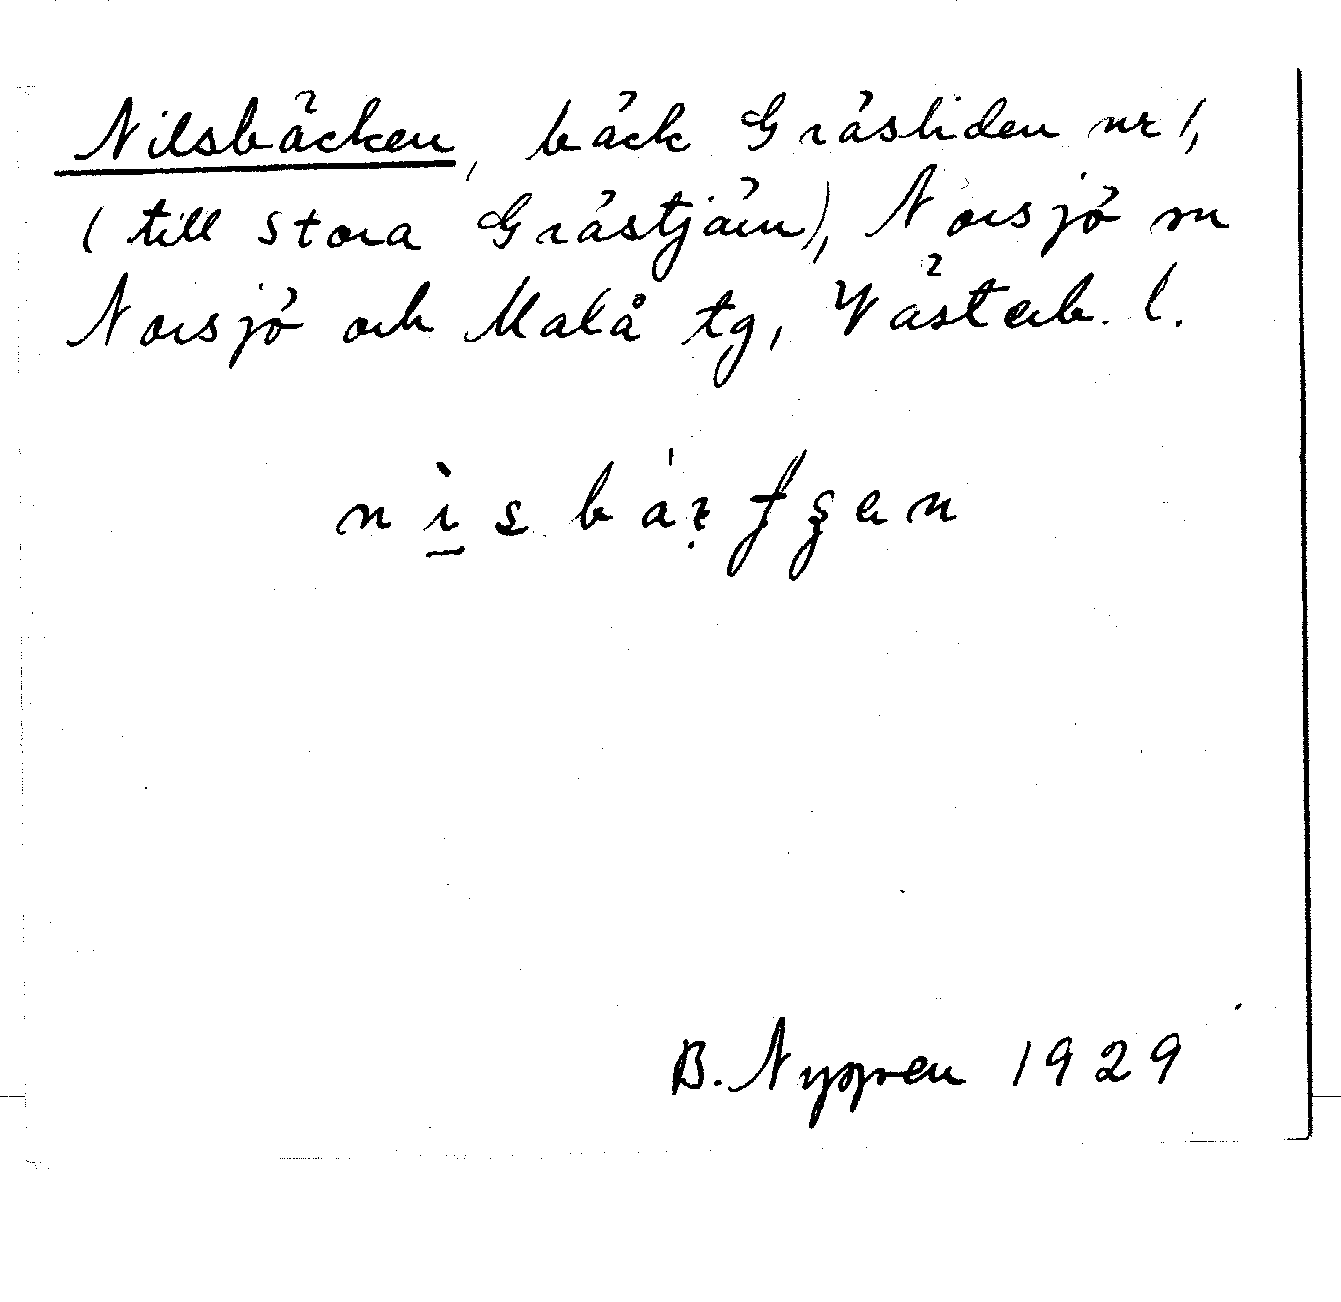 Nilsbäcken, bäck Gräsliden nr 1,
(till Stora Grästjärn), Norsjö sn
Norsjö och Malå tg, Västerb. l.
B. Nyppen 1929